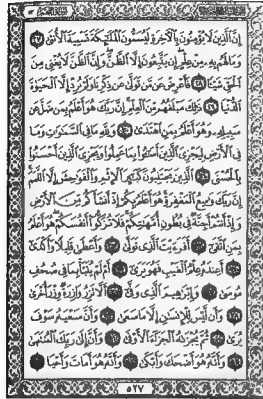 إِنَّ الَّذِينَ لَا يُؤْمِنُونَ بِالْآخِرَةِ لَيُسَمُّونَ الْمَلَائِكَةَ تَسْمِيَةَ الْأُنثَىٰ ٢٧
وَمَا لَهُم بِهِ مِنْ عِلْمٍ إِن يَتَّبِعُونَ إِلَّا الظَّنَّ وَإِنَّ الظَّنَّ لَا يُغْنِي مِنَ
الْحَقِّ شَيْئًا ٢٨ فَأَعْرِضْ عَن مَّن تَوَلَّىٰ عَن ذِكْرِنَا وَلَمْ يُرِدْ إِلَّا الْحَيَوٰةَ
الدُّنْيَا ٢٩ ذَٰلِكَ مَبْلَغُهُم مِّنَ الْعِلْمِ إِنَّ رَبَّكَ هُوَ أَعْلَمُ بِمَن ضَلَّ عَن
سَبِيلِهِ وَهُوَ أَعْلَمُ بِمَنِ اهْتَدَىٰ ٣٠ وَلِلَّهِ مَا فِي السَّمَٰوَٰتِ وَمَا
فِي الْأَرْضِ لِيَجْزِيَ الَّذِينَ أَسَٰٓـُٔوا بِمَا عَمِلُوا وَيَجْزِيَ الَّذِينَ أَحْسَنُوا
بِالْحُسْنَى ٣١ الَّذِينَ يَجْتَنِبُونَ كَبَٰٓئِرَ الْإِثْمِ وَالْفَوَٰحِشَ إِلَّا اللَّمَمَ
إِنَّ رَبَّكَ وَٰسِعُ الْمَغْفِرَةِ هُوَ أَعْلَمُ بِكُمْ إِذْ أَنشَأَكُم مِّنَ الْأَرْضِ
وَإِذْ أَنتُمْ أَجِنَّةٌ فِي بُطُونِ أُمَّهَٰتِكُمْ فَلَا تُزَكُّوا أَنفُسَكُمْ هُوَ أَعْلَمُ
بِمَنِ اتَّقَىٰ ٣٢ أَفَرَءَيْتَ الَّذِي تَوَلَّىٰ ٣٣ وَأَعْطَىٰ قَلِيلًا وَأَكْدَىٰ
٣٤ أَعِندَهُ عِلْمُ الْغَيْبِ فَهُوَ يَرَىٰ ٣٥ أَمْ لَمْ يُنَبَّأْ بِمَا فِي صُحُفِ
مُوسَىٰ ٣٦ وَإِبْرَٰهِيمَ الَّذِي وَفَّىٰ ٣٧ أَلَّا تَزِرُ وَازِرَةٌ وِزْرَ أُخْرَىٰ
٣٨ وَأَن لَّيْسَ لِلْإِنسَٰنِ إِلَّا مَا سَعَىٰ ٣٩ وَأَنَّ سَعْيَهُ سَوْفَ
يُرَىٰ ٤٠ ثُمَّ يُجْزَىٰهُ الْجَزَآءَ الْأَوْفَىٰ ٤١ وَأَنَّ إِلَىٰ رَبِّكَ الْمُنتَهَىٰ
٤٢ وَأَنَّهُ هُوَ أَضْحَكَ وَأَبْكَىٰ ٤٣ وَأَنَّهُ هُوَ أَمَاتَ وَأَحْيَا
٥٢٧